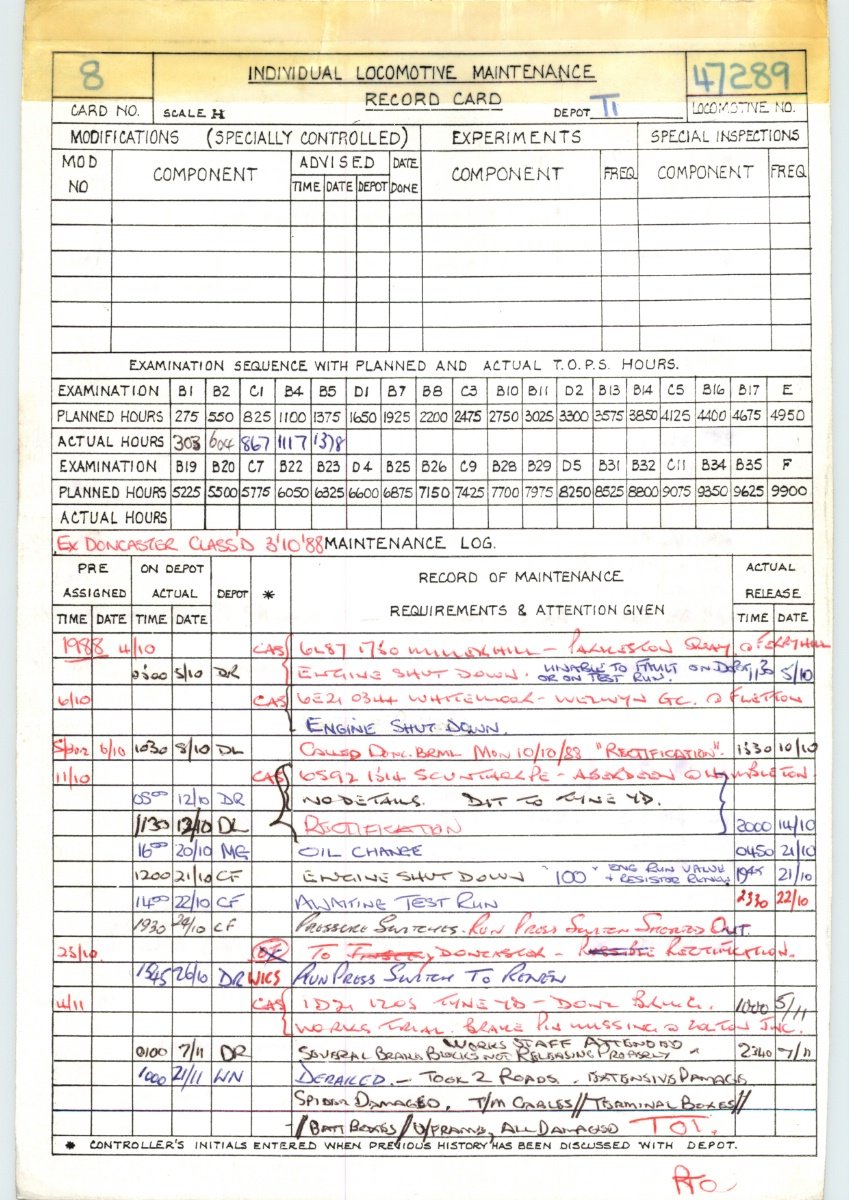 8 INDIVIDUAL LOCOMOTIVE MAINTENANCE 47289
CARD NO. SCALE H RECORD CARD DEPOT TI LOCOMOTIVE NO.
MODIFICATIONS (SPECIALLY CONTROLLED) EXPERIMENTS SPECIAL INSPECTIONS
MOD NO COMPONENT ADVISED DATE DONE COMPONENT FREQ COMPONENT FREQ
TIME DATE DEPOT
EXAMINATION SEQUENCE WITH PLANNED AND ACTUAL T.O.P.S. HOURS.
EXAMINATION B1 B2 C1 B4 B5 D1 B7 B8 C3 B10 B11 D2 B13 B14 C5 B16 B17 E
PLANNED HOURS 275 550 825 1100 1375 1650 1925 2200 2475 2750 3025 3300 3575 3850 4125 4400 4675 4950
ACTUAL HOURS 303 604 867 1117 1378
EXAMINATION B19 B20 C7 B22 B23 D4 B25 B26 C9 B28 B29 D5 B31 B32 C11 B34 B35 F
PLANNED HOURS 5225 5500 5775 6050 6325 6600 6875 7150 7425 7700 7975 8250 8525 8800 9075 9350 9625 9900
ACTUAL HOURS
EX DONCASTER CLASS'D 3'10'88 MAINTENANCE LOG.
PRE ASSIGNED ON DEPOT ACTUAL DEPOT * RECORD OF MAINTENANCE REQUIREMENTS & ATTENTION GIVEN ACTUAL RELEASE
TIME DATE TIME DATE TIME DATE
1988 4/10 CAS 6L87 1730 MILLERHILL - PARKESTON QUAY @ FERRYHILL
5/10 DR ENGINE SHUT DOWN. UNABLE TO FAULT ON DEPOT 1130 5/10
OR ON TEST RUN.
6/10 CAS 6E21 0344 WHITEMOOR - WELWYN GC. @ FLETTON
ENGINE SHUT DOWN.
6/10 1030 8/10 DL CALLED DONC. BRML MON 10/10/88 "RECTIFICATION". 1330 10/10
11/10 CAS 6S92 1314 SCUNTHORPE - ABERDEEN @
0500 12/10 DR NO DETAILS. DIT TO TYNE YD.
1130 13/10 DL RECTIFICATION 2000 14/10
1600 20/10 MG OIL CHANGE 0450 21/10
1200 21/10 CF ENGINE SHUT DOWN "100" ENG RUN VALVE 1945 21/10
+ RESISTOR RENEW
1400 22/10 CF AWAITING TEST RUN 2330 22/10
1930 24/10 CF PRESSURE SWITCHES. RUN PRESS SWITCH SHORTED OUT.
25/10 TO DONCASTER - RECTIFICATION.
1545 26/10 DR WKS RUN PRESS SWITCH TO RENEW
4/11 CAS 1D21 1205 TYNE YD - DONC 1000 5/11
WORKS TRIAL. BRAKE PIN MISSING @ JNC.
WORKS STAFF ATTENDED
0100 7/11 DR SEVERAL BRAKE BLOCKS NOT RELEASING PROPERLY 2340 7/11
1000 21/11 WN DERAILED. - TOOK 2 ROADS. EXTENSIVE DAMAGE
SPIDER DAMAGED, T/M CABLES // TERMINAL BOXES //
// BATT BOXES / U/FRAME, ALL DAMAGED TOT.
* CONTROLLER'S INITIALS ENTERED WHEN PREVIOUS HISTORY HAS BEEN DISCUSSED WITH DEPOT.
PTO